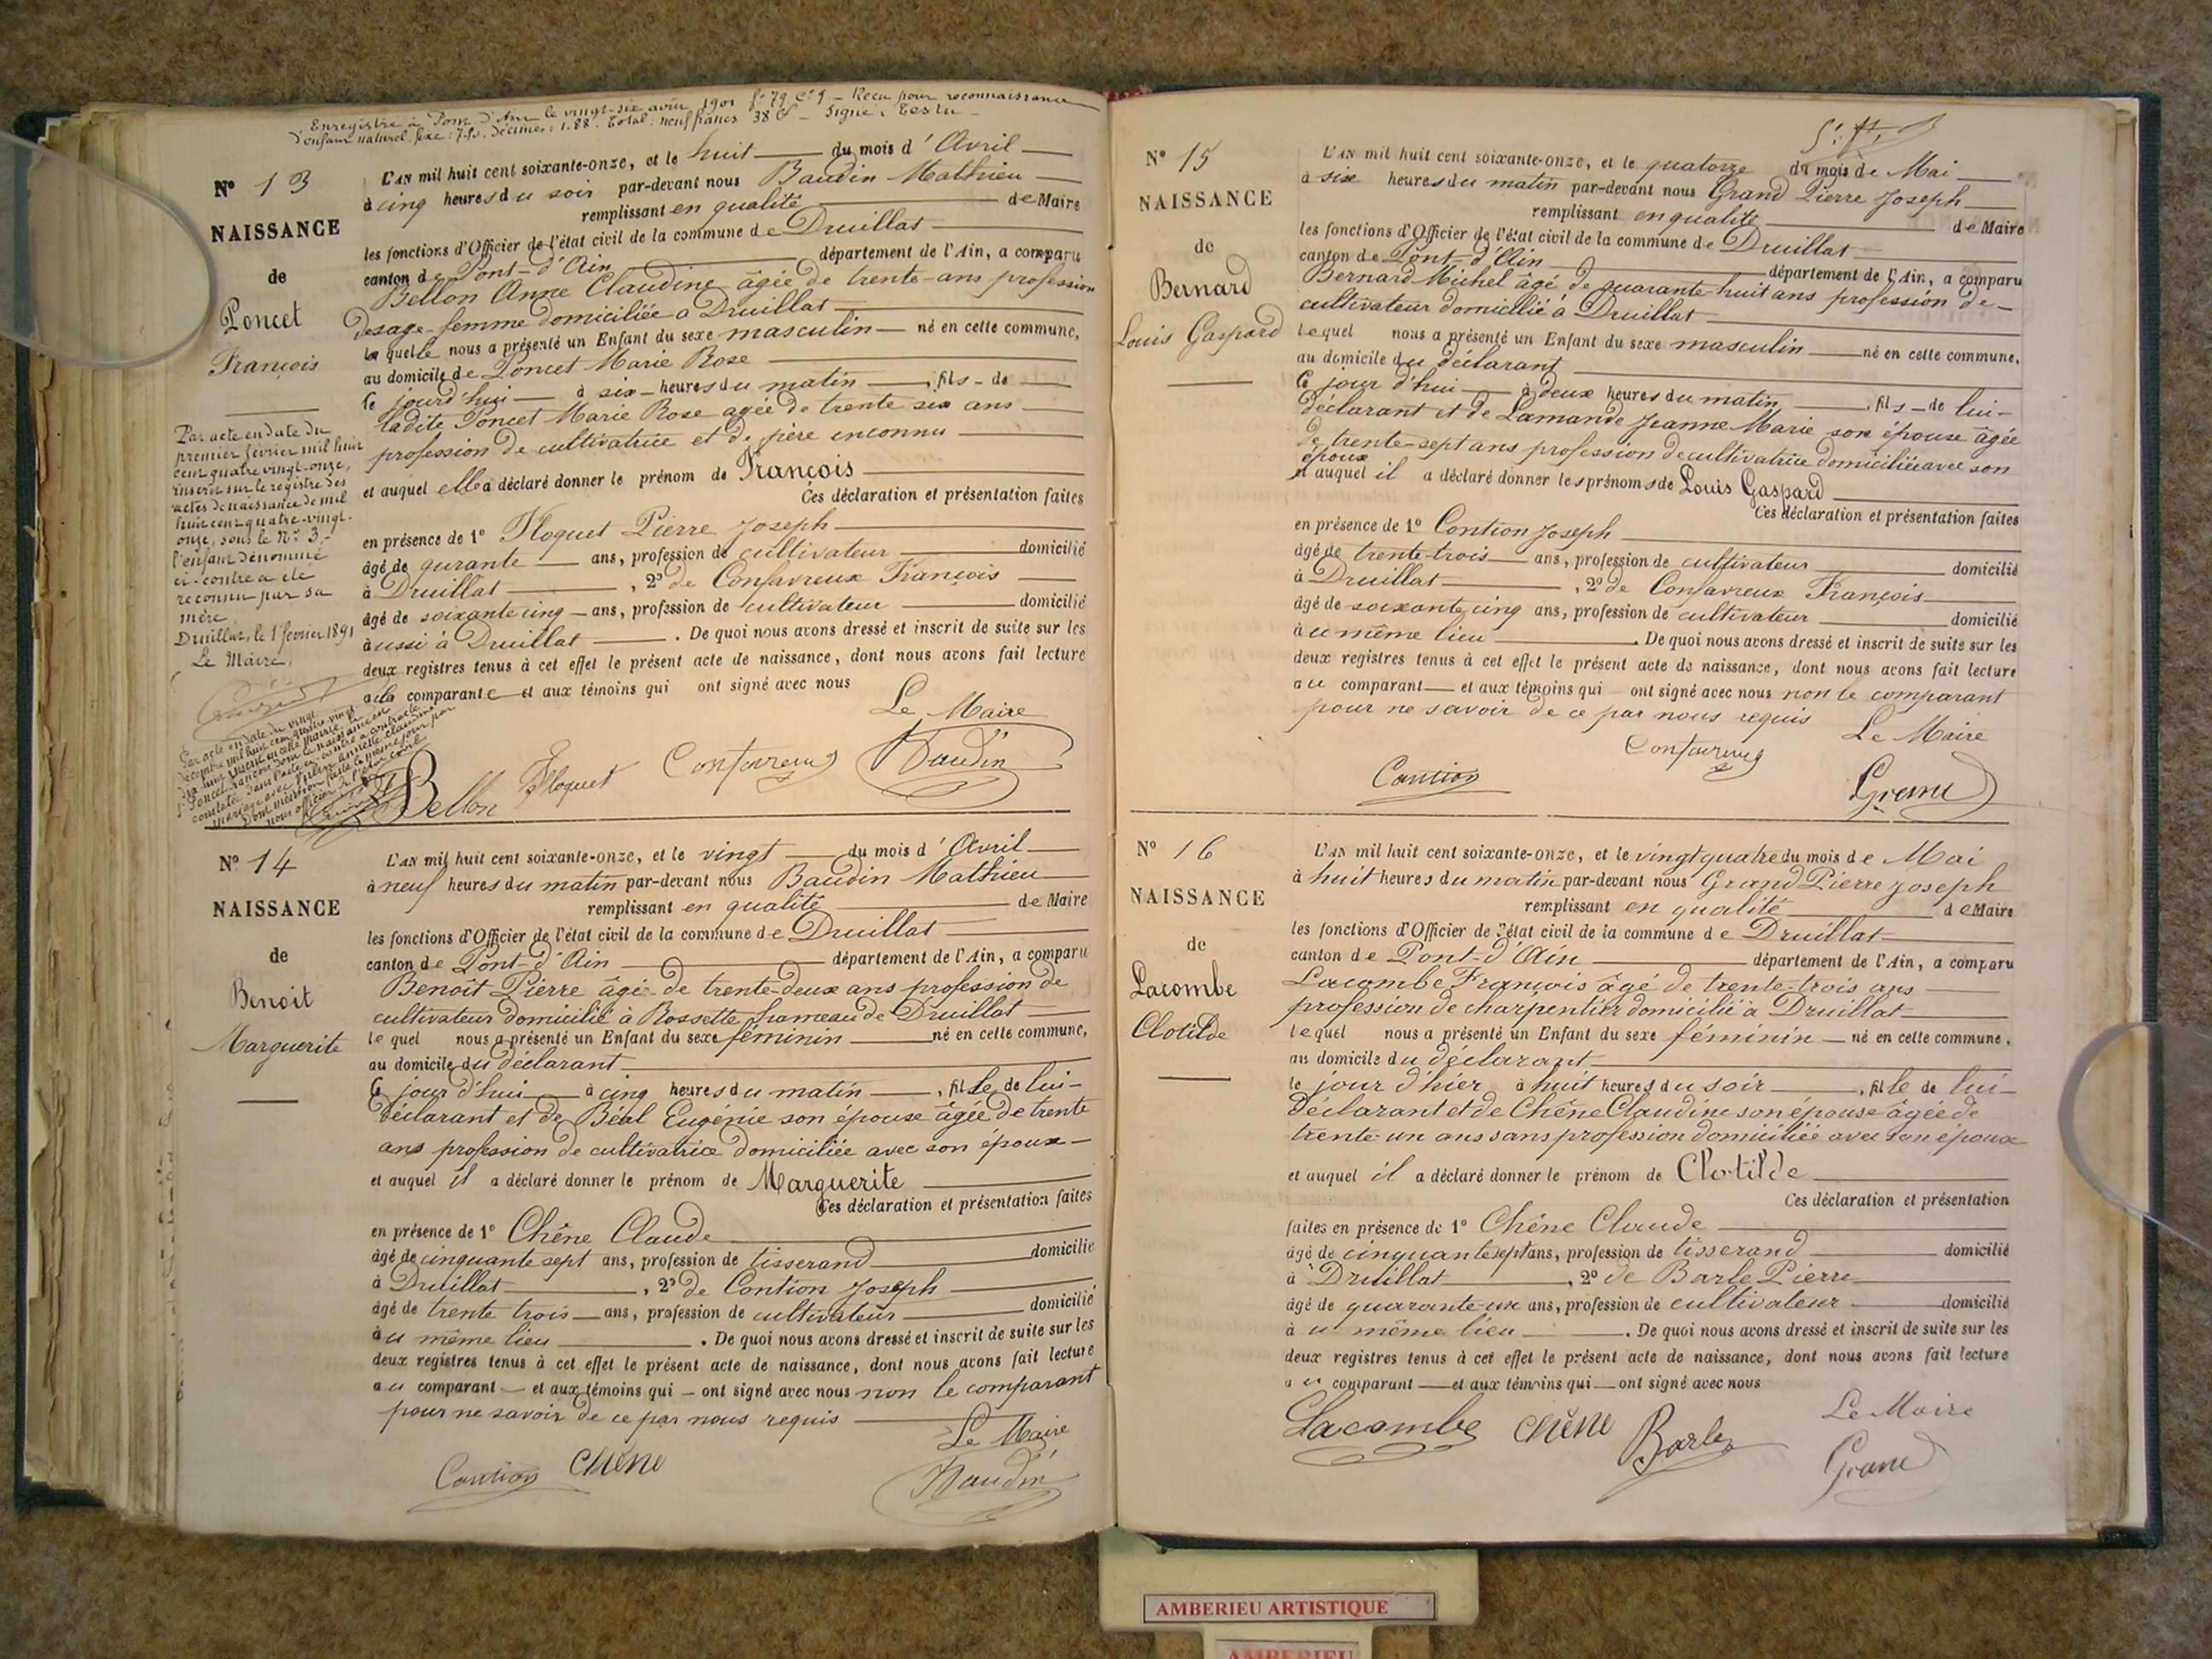 Enregistré à Pont d'Ain le vingt-six août 1901 fo 79 Ce 9 — Reçu pour reconnaissance
d'enfant naturel fixe : 7.50. Décimes : 1.88. Total : neuf francs 38 c — Signé : Testu
Nº 13
NAISSANCE
de
Poncet
François
Par acte en date du
premier février mil huit
cent quatre vingt-onze,
inscrit sur le registre des
actes de naissance de mil
huit cent quatre-vingt-
onze, sous le Nº 3,
l'enfant dénommé
ci-contre a été
reconnu par sa
mère
Druillat, le 1er février 1891
Le Maire,
L'AN mil huit cent soixante-onze, et le huit du mois d'Avril
à cinq heures du soir par-devant nous Baudin Mathieu
remplissant en qualité de Maire
les fonctions d'Officier de l'état civil de la commune de Druillat
canton de Pont-d'Ain département de l'Ain, a comparu
Bellon Anne Claudine âgée de trente-ans profession
de sage-femme domiciliée à Druillat
laquelle nous a présenté un Enfant du sexe masculin né en cette commune,
au domicile de Poncet Marie Rose
le jourd'hui à six heures du matin, fils de
ladite Poncet Marie Rose agée de trente six ans
profession de cultivatrice et de père inconnu
et auquel elle a déclaré donner le prénom de François
Ces déclaration et présentation faites
en présence de 1º Floquet Pierre Joseph
âgé de qurante ans, profession de cultivateur domicilié
à Druillat, 2º de Confavreux François
âgé de soixante cinq ans, profession de cultivateur domicilié
aussi à Druillat. De quoi nous avons dressé et inscrit de suite sur les
deux registres tenus à cet effet le présent acte de naissance, dont nous avons fait lecture
à la comparante et aux témoins qui ont signé avec nous
Le Maire
Bellon Floquet Confavreux Baudin
Nº 14
NAISSANCE
de
Benoit
Marguerite
L'AN mil huit cent soixante-onze, et le vingt du mois d'Avril
à neuf heures du matin par-devant nous Baudin Mathieu
remplissant en qualité de Maire
les fonctions d'Officier de l'état civil de la commune de Druillat
canton de Pont-d'Ain département de l'Ain, a comparu
Benoît Pierre âgé de trente-deux ans profession de
cultivateur domicilié à Rossette hameau de Druillat
lequel nous a présenté un Enfant du sexe féminin né en cette commune,
au domicile du déclarant
le jour d'hui à cinq heures du matin, fille de lui-
déclarant et de Béal Eugénie son épouse âgée de trente
ans profession de cultivatrice domiciliée avec son époux
et auquel il a déclaré donner le prénom de Marguerite
Ces déclaration et présentation faites
en présence de 1º Chêne Claude
âgé de cinquante sept ans, profession de tisserand domicilié
à Druillat, 2º de Contion Joseph
âgé de trente trois ans, profession de cultivateur domicilié
au même lieu. De quoi nous avons dressé et inscrit de suite sur les
deux registres tenus à cet effet le présent acte de naissance, dont nous avons fait lecture
au comparant et aux témoins qui ont signé avec nous non le comparant
pour ne savoir de ce par nous requis
Le Maire
Contion Chêne Baudin
Nº 15
NAISSANCE
de
Bernard
Louis Gaspard
L'AN mil huit cent soixante-onze, et le quatorze du mois de Mai
à six heures du matin par-devant nous Grand Pierre Joseph
remplissant en qualité de Maire
les fonctions d'Officier de l'état civil de la commune de Druillat
canton de Pont-d'Ain département de l'Ain, a comparu
Bernard Michel âgé de quarante-huit ans profession de
cultivateur domicilié à Druillat
lequel nous a présenté un Enfant du sexe masculin né en cette commune,
au domicile du déclarant
le jour d'hui à deux heures du matin, fils de lui-
déclarant et de Lamande Jeanne Marie son épouse âgée
de trente-sept ans profession de cultivatrice domiciliée avec son
époux
et auquel il a déclaré donner les prénoms de Louis Gaspard
Ces déclaration et présentation faites
en présence de 1º Contion Joseph
âgé de trente-trois ans, profession de cultivateur domicilié
à Druillat, 2º de Confavreux François
âgé de soixante cinq ans, profession de cultivateur domicilié
au même lieu. De quoi nous avons dressé et inscrit de suite sur les
deux registres tenus à cet effet le présent acte de naissance, dont nous avons fait lecture
au comparant et aux témoins qui ont signé avec nous non le comparant
pour ne savoir de ce par nous requis
Le Maire
Contion Confavreux Grand
Nº 16
NAISSANCE
de
Lacombe
Clotilde
L'AN mil huit cent soixante-onze, et le vingt quatre du mois de Mai
à huit heures du matin par-devant nous Grand Pierre Joseph
remplissant en qualité de Maire
les fonctions d'Officier de l'état civil de la commune de Druillat
canton de Pont-d'Ain département de l'Ain, a comparu
Lacombe François âgé de trente-trois ans
profession de charpentier domicilié à Druillat
lequel nous a présenté un Enfant du sexe féminin né en cette commune,
au domicile du déclarant
le jour d'hier à huit heures du soir, fille de lui-
déclarant et de Chêne Claudine son épouse âgée de
trente-un ans sans profession domiciliée avec son époux
et auquel il a déclaré donner le prénom de Clotilde
Ces déclaration et présentation
faites en présence de 1º Chêne Claude
âgé de cinquante sept ans, profession de tisserand domicilié
à Druillat, 2º de Barle Pierre
âgé de quarante-un ans, profession de cultivateur domicilié
au même lieu. De quoi nous avons dressé et inscrit de suite sur les
deux registres tenus à cet effet le présent acte de naissance, dont nous avons fait lecture
au comparant et aux témoins qui ont signé avec nous
Le Maire
Lacombe Chêne Barle Grand
AMBERIEU ARTISTIQUE
AMBERIEU